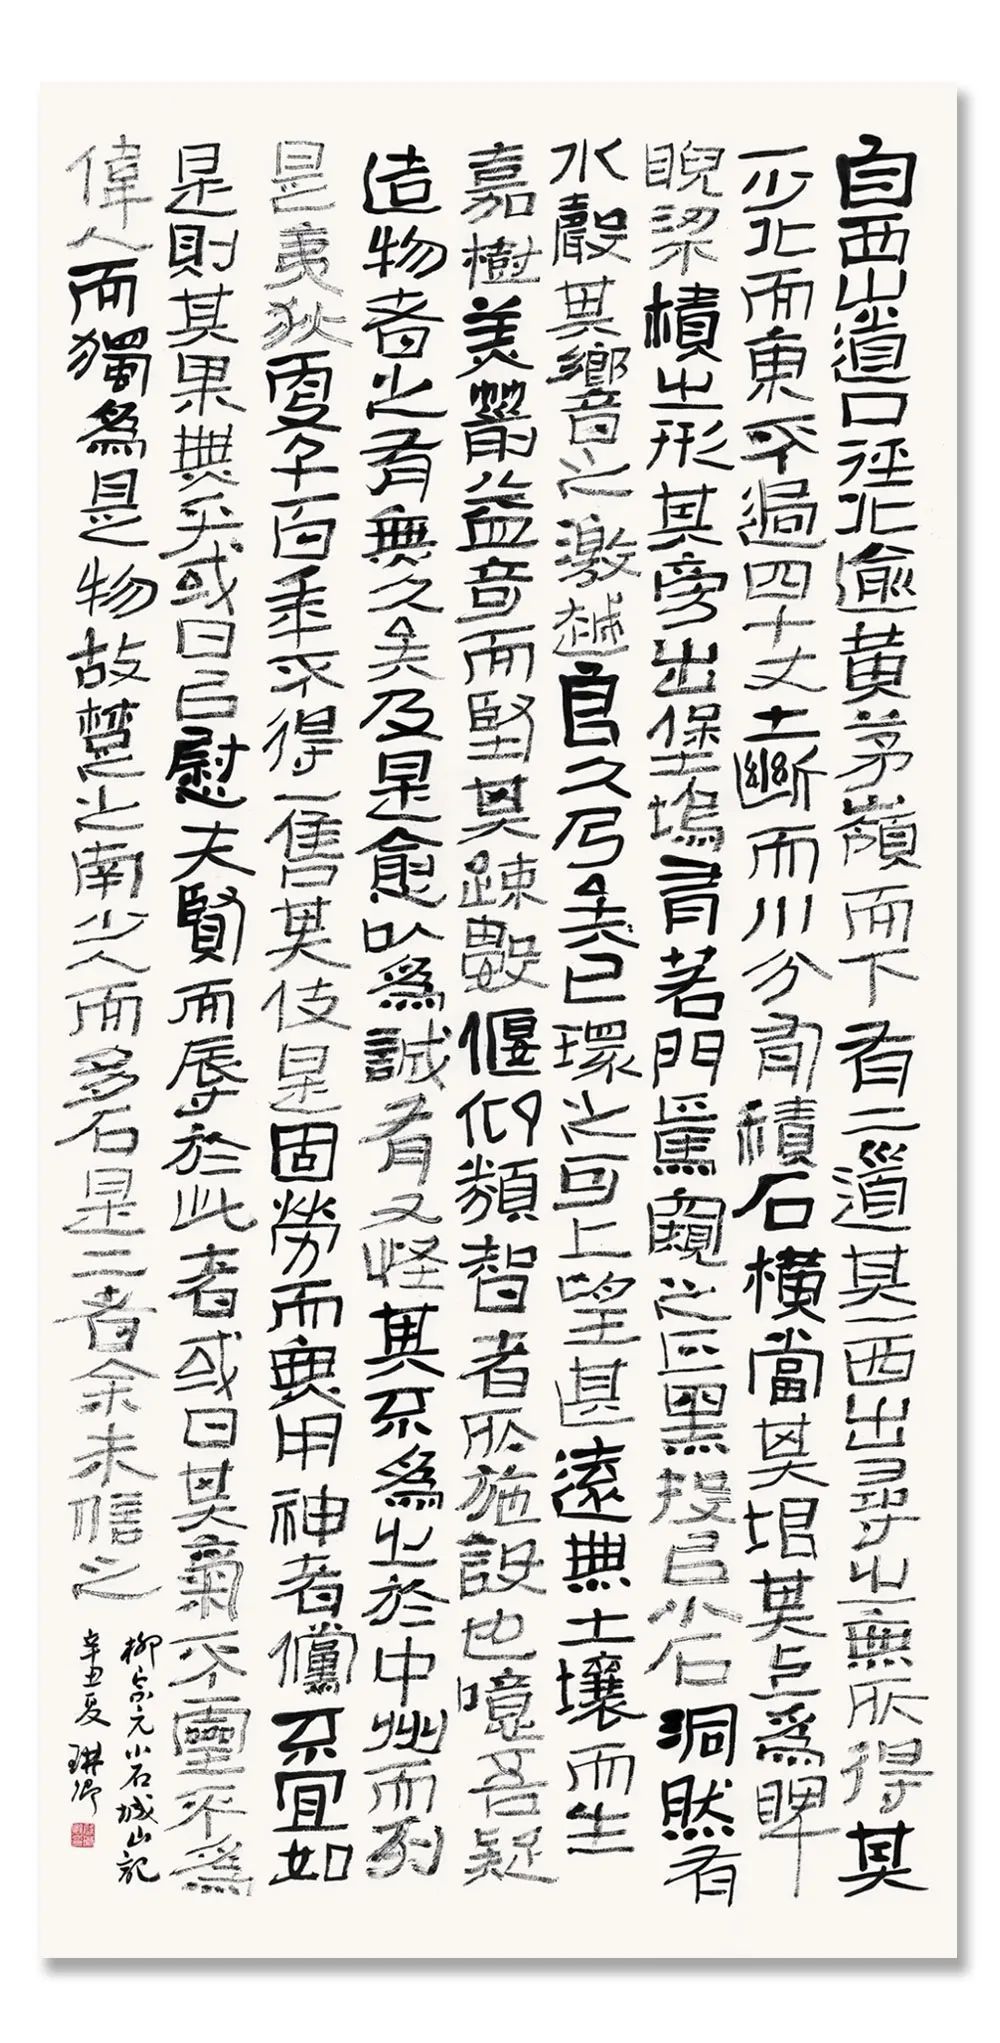 自西山道口徑北逾黃茅嶺而下有二道其一西出尋之無所得其
一少北而東不過四十丈土斷而川分有積石橫當其垠其上為睥
睨梁樍之形其旁出堡塢有若門焉窺之正黑投以小石洞然有
水聲其響之激越良久乃矣已環之可上望甚遠無土壤而生
嘉樹美箭益奇而堅其疎數偃仰類智者所施設也噫吾疑
造物者之有無久矣及是愈以為誠有又怪其不為之於中州而列
是夷狄更千百年不得一售其伎是固勞而無用神者儻不宜如
是則其果無乎或曰以慰夫賢而辱於此者或曰其氣不靈不為
偉人而獨為是物故楚之南少人而多石是二者余未信之
柳宗元小石城山記
辛丑夏 琳卿